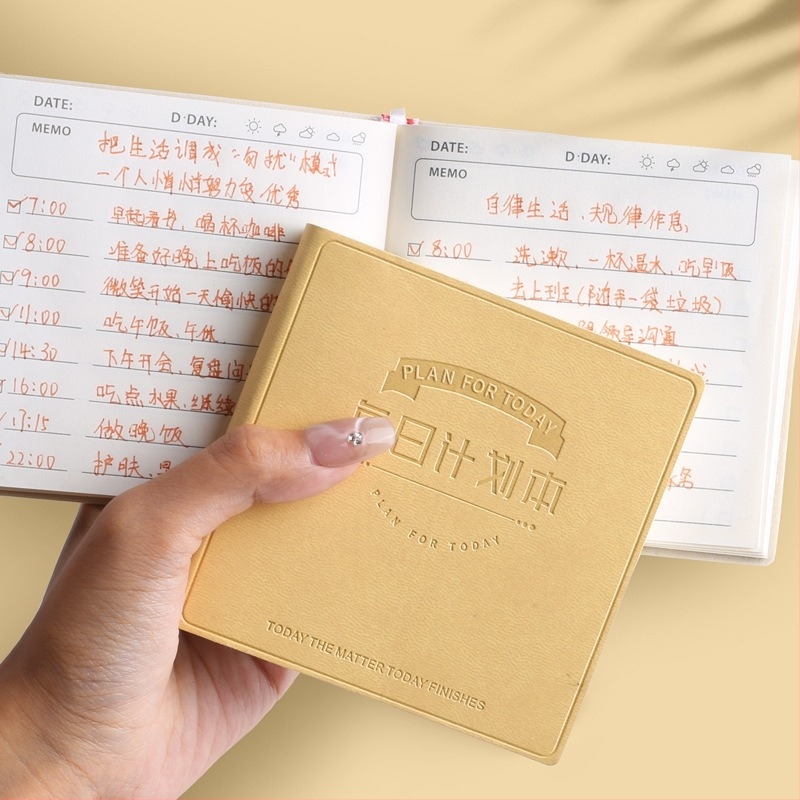 DATE:
D·DAY:
MEMO
把生活调成“勿扰”模式
一个人悄悄努力变优秀
7:00 早起看书、喝杯咖啡
8:00 准备好晚上吃饭的
9:00 微笑开始一天愉快的
11:00 吃午饭、午休
14:30 下午开会、复盘问
16:00 吃点水果、继续
17:15 做晚饭
22:00 护肤、早
DATE:
D·DAY:
MEMO
自律生活、规律作息
8:00 洗漱、一杯温水、吃早饭
去上班(随手一袋垃圾)
跟领导沟通
PLAN FOR TODAY
日计划本
PLAN FOR TODAY
TODAY THE MATTER TODAY FINISHES